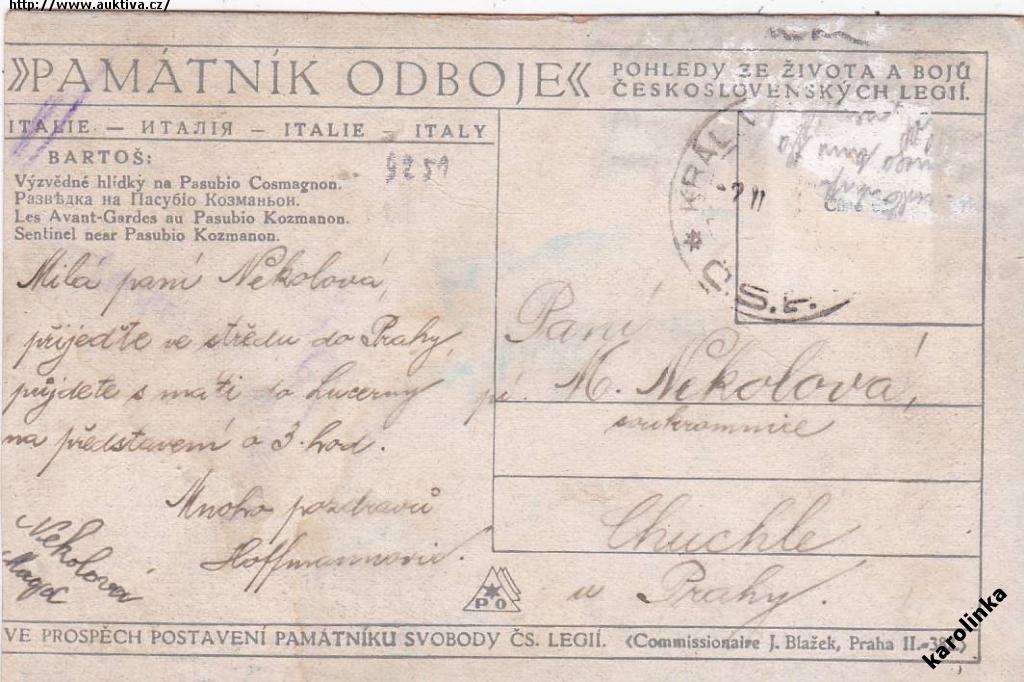 http://www.auktiva.cz/
»PAMÁTNÍK ODBOJE«
POHLEDY ZE ŽIVOTA A BOJŮ
ČESKOSLOVENSKÝCH LEGIÍ.
ITALIE — ИТАЛІЯ — ITALIE — ITALY
BARTOŠ:
9251
Výzvědné hlídky na Pasubio Cosmagnon.
Развѣдка на Пасубіо Козманьон.
Les Avant-Gardes au Pasubio Kozmanon.
Sentinel near Pasubio Kozmanon.
Milá paní Nekolová,
přijeďte ve středu do Prahy,
půjdete s mati do Lucerny
na představení o 3. hod.
Mnoho pozdravů
Hoffmannovic.
Nekolová
KRÁL
Č.S.R.
Paní
M. Nekolová,
soukromnice
Chuchle
u Prahy.
PO
VE PROSPĚCH POSTAVENÍ PAMÁTNÍKU SVOBODY ČS. LEGIÍ. (Commissionaire J. Blažek, Praha II.-38
karolinka